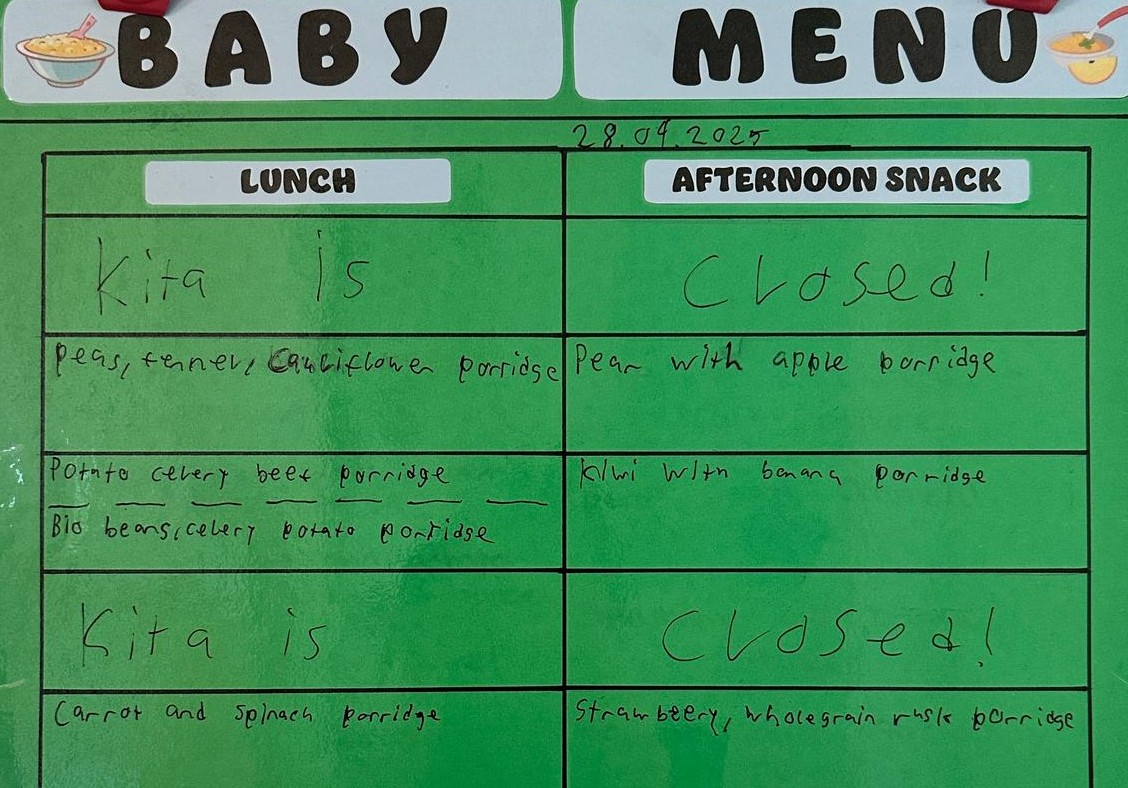 BABY MENU
28.04.2025
LUNCH AFTERNOON SNACK
Kita is Closed!
Peas, fennel, Cauliflower porridge Pear with apple porridge
Potato celery beef porridge Kiwi with banana porridge
Bio beans, celery potato porridge
Kita is Closed!
Carrot and Spinach porridge Strawbeery, wholegrain rusk porridge